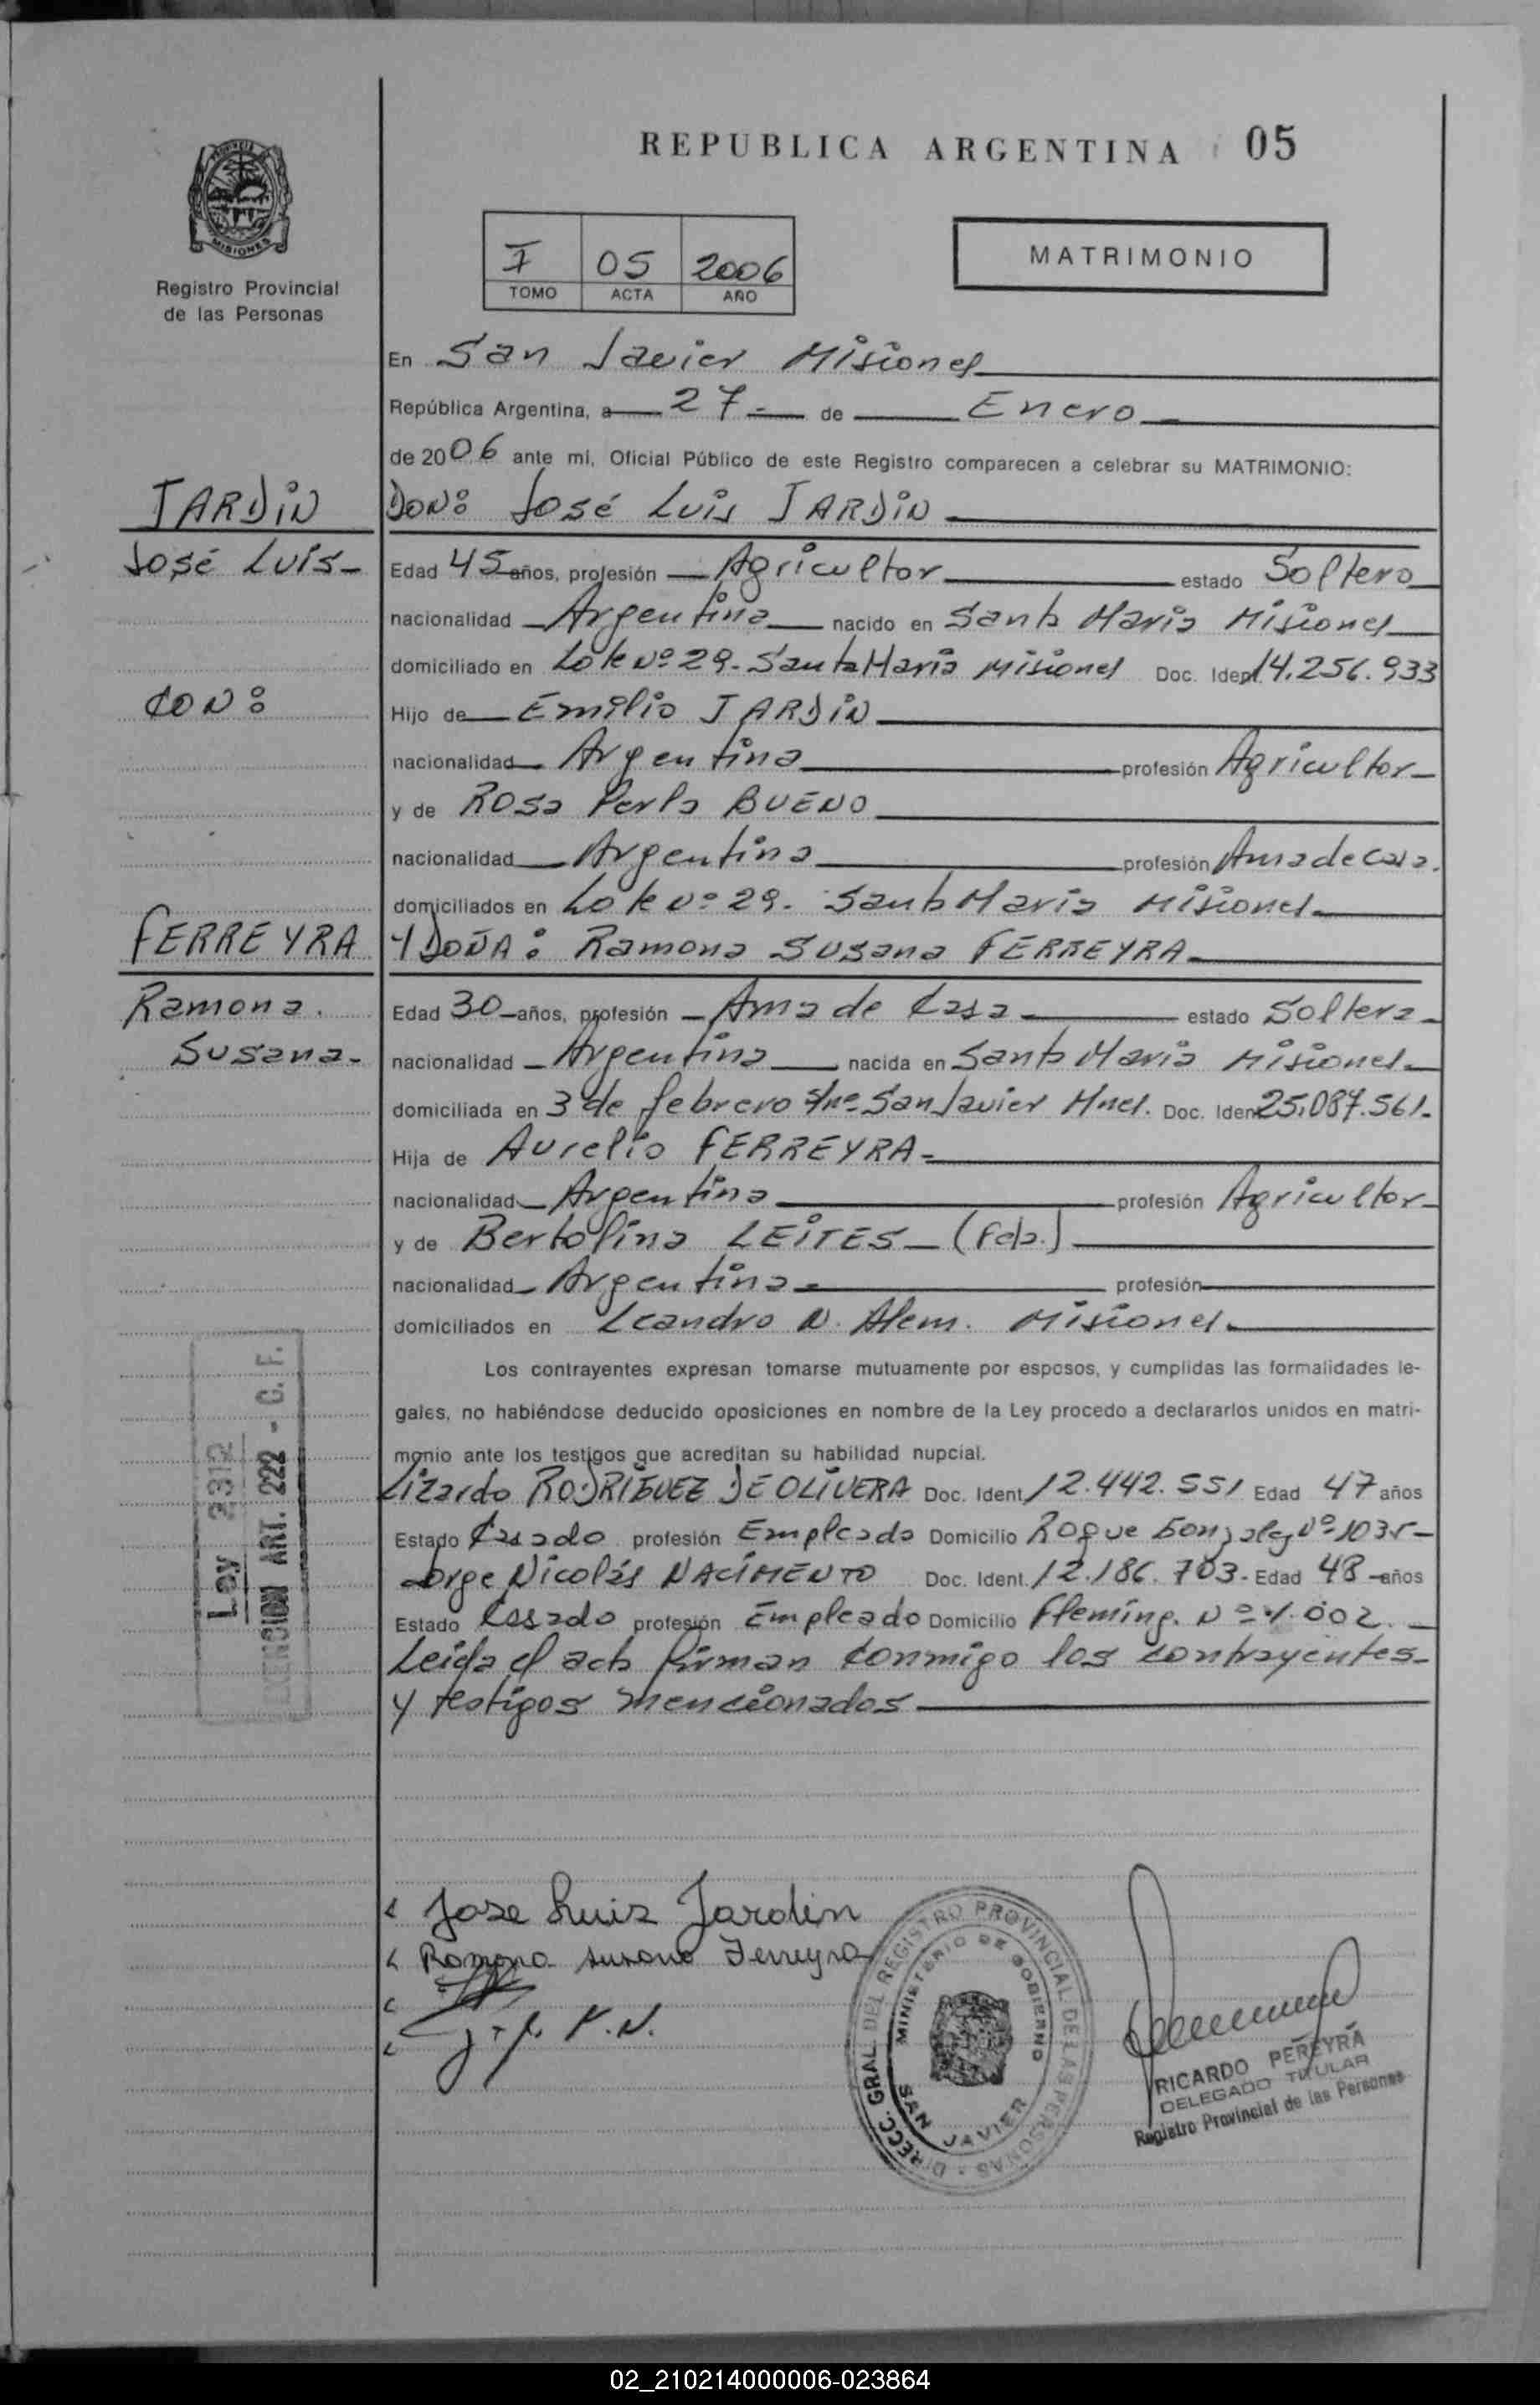 REPUBLICA ARGENTINA 05
MISIONES
Registro Provincial
de las Personas
I 05 2006
TOMO ACTA AÑO
MATRIMONIO
En San Javier Misiones
República Argentina, a 27 de Enero
de 2006 ante mi, Oficial Público de este Registro comparecen a celebrar su MATRIMONIO:
JARDIN
DON: José Luis JARDIN
José Luis
Edad 45 años, profesión Agricultor estado Soltero
nacionalidad Argentina nacido en Santa Maria Misiones
domiciliado en Lote Nº 29 - Santa Maria Misiones Doc. Ident. 14.256.933
CON:
Hijo de Emilio JARDIN
nacionalidad Argentina profesión Agricultor
y de Rosa Perla BUENO
nacionalidad Argentina profesión Ama de Casa.
domiciliados en Lote Nº 29. Santa Maria Misiones
FERREYRA
Y DOÑA: Ramona Susana FERREYRA
Ramona.
Edad 30 años, profesión Ama de Casa estado Soltera
Susana
nacionalidad Argentina nacida en Santa Maria Misiones
domiciliada en 3 de febrero s/nº San Javier Mnes. Doc. Iden 25.087.561.
Hija de Aurelio FERREYRA
nacionalidad Argentina profesión Agricultor
y de Bertolina LEITES (Fda.)
nacionalidad Argentina profesión
domiciliados en Leandro N. Alem. Misiones
Los contrayentes expresan tomarse mutuamente por esposos, y cumplidas las formalidades le-
gales, no habiéndose deducido oposiciones en nombre de la Ley procedo a declararlos unidos en matri-
monio ante los testigos que acreditan su habilidad nupcial.
Lizardo RODRIGUEZ DE OLIVERA Doc. Ident. 12.442.551 Edad 47 años
Estado Casado profesión Empleado Domicilio Roque Gonzalez Nº 1035
Jorge Nicolás NACIMENTO Doc. Ident. 12.186.703 Edad 48 años
Estado Casado profesión Empleado Domicilio Fleming. Nº 1.002.
Leida el acta firman conmigo los contrayentes
y testigos mencionados
Ley 2312
ART. 222 - C. F.
Jose Luis Jardin
Ramona Susana Ferreyra
DIRECC. GRAL. DEL REGISTRO PROVINCIAL DE LAS PERSONAS
MINISTERIO DE GOBIERNO
SAN JAVIER
RICARDO PEREYRA
DELEGADO TITULAR
Registro Provincial de las Personas
02_210214000006-023864